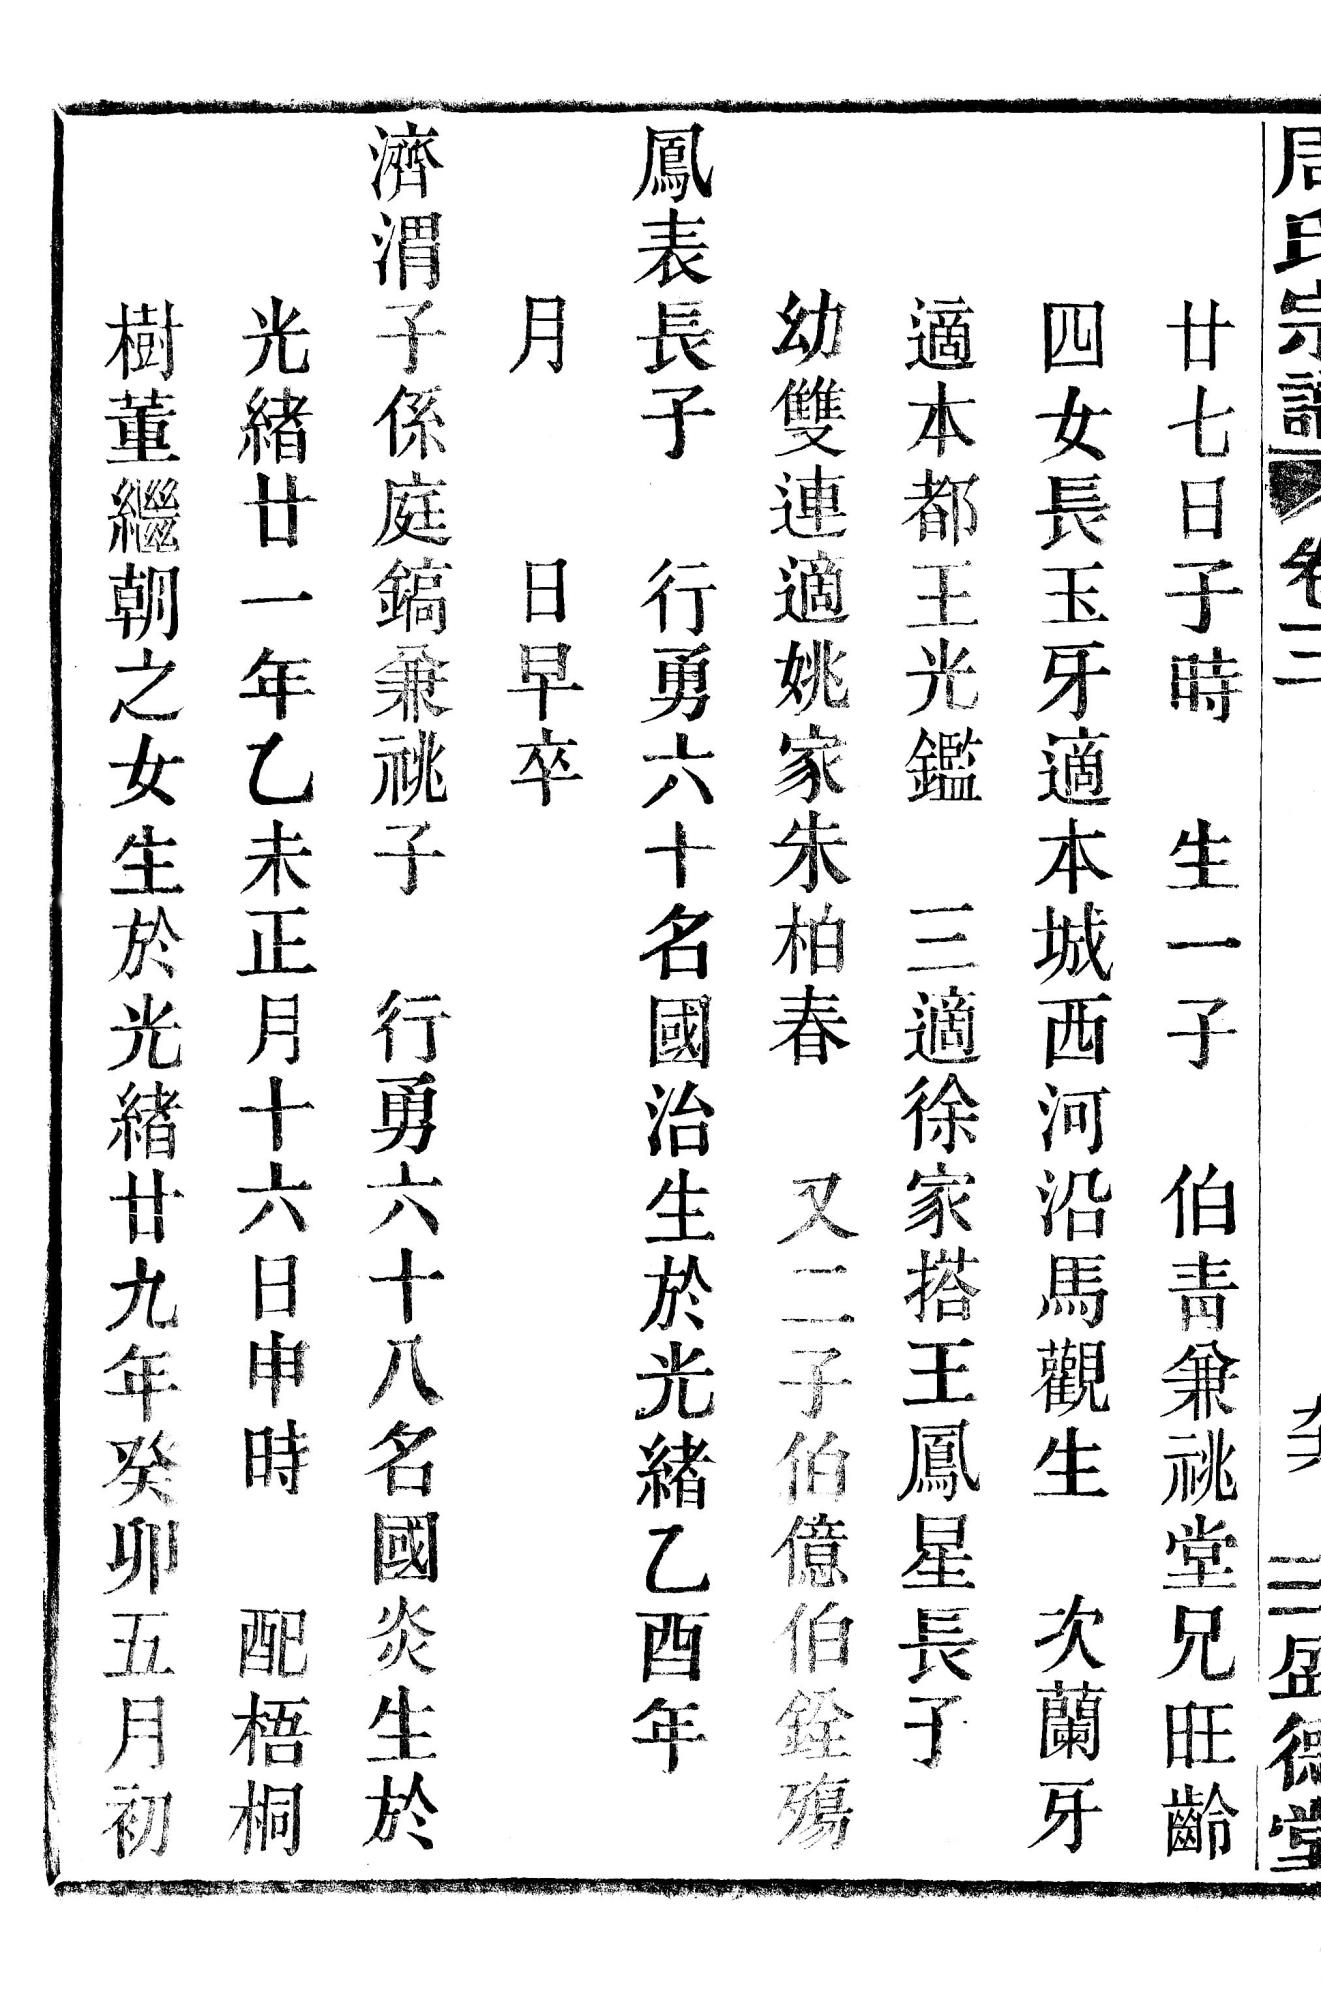 周氏宗譜 卷三 三盛德堂
廿七日子時 生一子 伯青兼祧堂兄旺齡
四女長玉牙適本城西河沿馬觀生 次蘭牙
適本都王光鑑 三適徐家搭王鳳星長子
幼雙連適姚家朱柏春 又二子伯億伯銓殤
鳳表長子 行勇六十名國治生於光緒乙酉年
月 日早卒
濟渭子係庭鎬兼祧子 行勇六十八名國炎生於
光緒廿一年乙未正月十六日申時 配梧桐
樹董繼朝之女生於光緒廿九年癸卯五月初